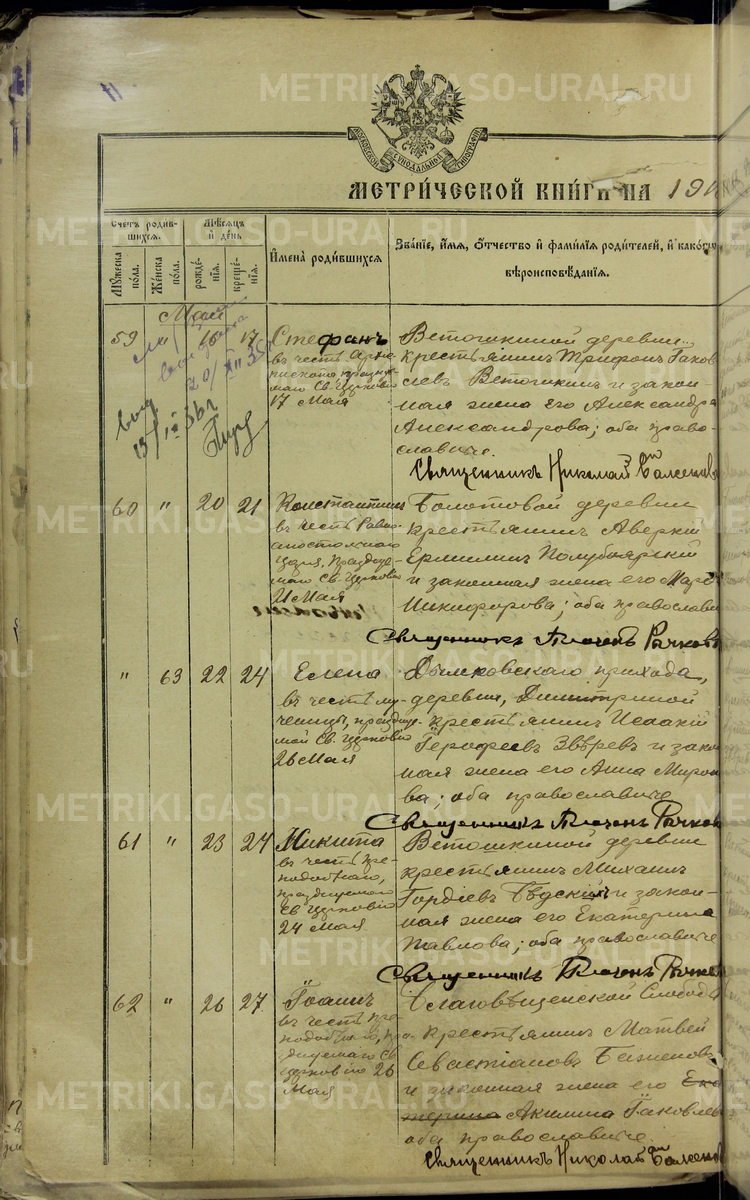 METRIKI.GASO-URAL.RU
МОСКОВСКОЙ СѴНОДАЛЬНОЙ ТИПОГРАФІИ
МЕТРИ́ЧЕСКОЙ КНИ́ГИ НА 19
Счетъ родив-
шихся.
Мѣсяцъ
и день
Мужеска
пола.
Женска
пола.
рожде-
нія.
креще-
нія.
Имена родившихся
Званіе, имя, отчество и фамилія родителей, и како
вѣроисповѣданія.
Май
59 " 16 17
Стефанъ
въ честь
Св. Церковію
17 Мая
Ветошкиной деревни
крестьянинъ Трифонъ Іаков
левъ Ветошкинъ и закон-
ная жена его Александра
Александрова; оба право-
славные.
Священникъ Николай
60 " 20 21
Константинъ
въ честь Равно-
апостольнаго
Царя, празднуе-
маго Св. Церковію
21 Мая
Болотовой деревни
крестьянинъ Аверкій
Ермилинъ Полубоярскій
и законная жена его
Никифорова; оба православ
Священникъ Рычков
" 63 22 24
Елена
въ честь му-
ченицы, праздну-
мой Св. Церковію
26 Мая
Дымковскаго прихода,
деревни, Димитриной
крестьянинъ Исаакій
Герофеевъ Звѣревъ и закон
ная жена его Анна Мироно
ва; оба православные
Священникъ Рычков
61 " 23 24
Никита
въ честь пре-
подобнаго,
празднуемаго
Св. Церковію
24 Мая
Ветошкиной деревни
крестьянинъ Михаилъ
Гордіевъ и закон-
ная жена его Екатерина
Павлова; оба православные
Священникъ Рычков
62 " 26 27
Іоаннъ
въ честь пре-
подобнаго, пра-
зднуемаго Св.
Церковію 26
Мая
Благовѣщенской Слободы
крестьянинъ Матвей
Севастіановъ Баженовъ
и законная жена его Ека
терина Акилина Іаковлев
оба православные.
Священникъ Николай